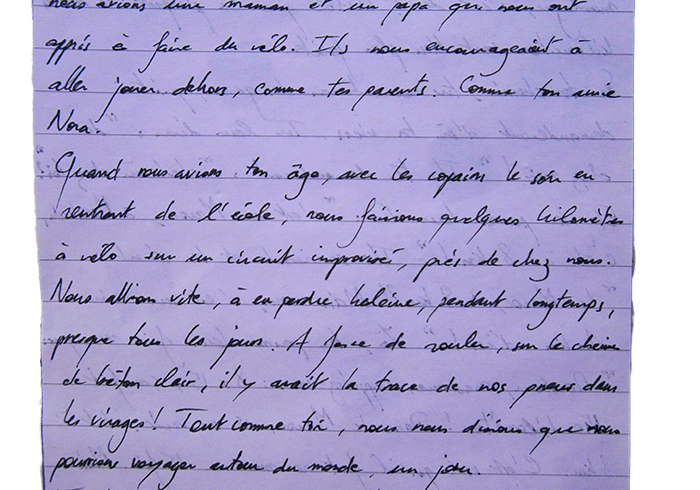 nous avions une maman et un papa qui nous ont
appris à faire du vélo. Ils nous encourageaient à
aller jouer dehors, comme tes parents. Comme ton amie
Nora.
Quand nous avions ton âge, avec les copains le soir en
rentrant de l'école, nous faisions quelques kilomètres
à vélo sur un circuit improvisé, près de chez nous.
Nous allions vite, à en perdre haleine, pendant longtemps,
presque tous les jours. A force de rouler, sur le chemin
de béton clair, il y avait la trace de nos pneus dans
les virages ! Tout comme toi, nous nous disions que nous
pourrions voyager autour du monde, un jour.